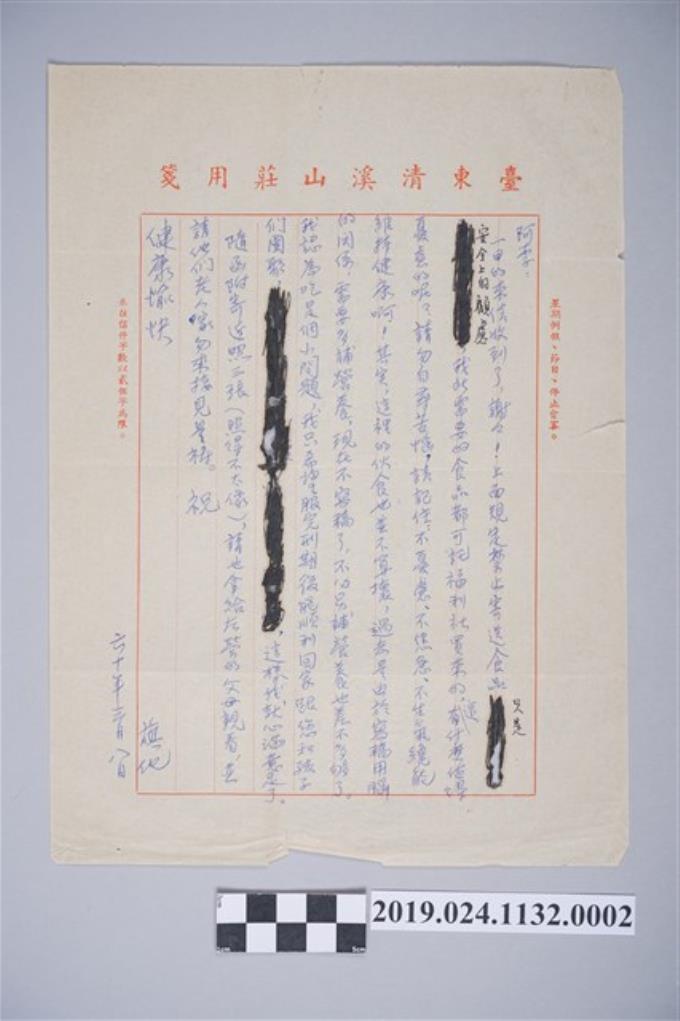 臺東清溪山莊用箋
星期例假、節日、停止會客。
阿李：
一日的來信收到了，謝々！上面規定禁止寄送食品 只是
安全上的顧慮 ，我所需要的食品都可託福利社買來的，這有什麼值得
憂慮的呢？請勿自尋苦惱，請記住：不憂慮、不焦急、不生氣纔能
維持健康啊！其實，這裡的伙食也並不算壞，過去是由於寫稿用腦
的関係，需要多補營養，現在不寫稿了，不必另補營養也差不多夠了。
我認為吃是個小問題，我只希望服完刑期後能順利回家跟您和孩子
們團聚， ，這樣我就心滿意足了。
隨函附寄近照三張（照得不太像），請也拿給左營的父母親看，並
請他們老人家勿來接見是禱。祝
健康愉快
旗化
六十年三月八日
來往信件字數以貳佰字為限。
2019.024.1132.0002
1cm
5cm